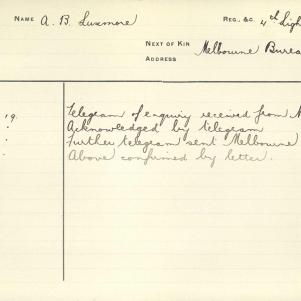 NAME A. B. Luxmore REG. &C. 4th Ligh
NEXT OF KIN Melbourne Burea
ADDRESS
19. Telegram of enquiry received from M
" Acknowledged by telegram
" Further telegram sent Melbourne
" Above confirmed by letter.